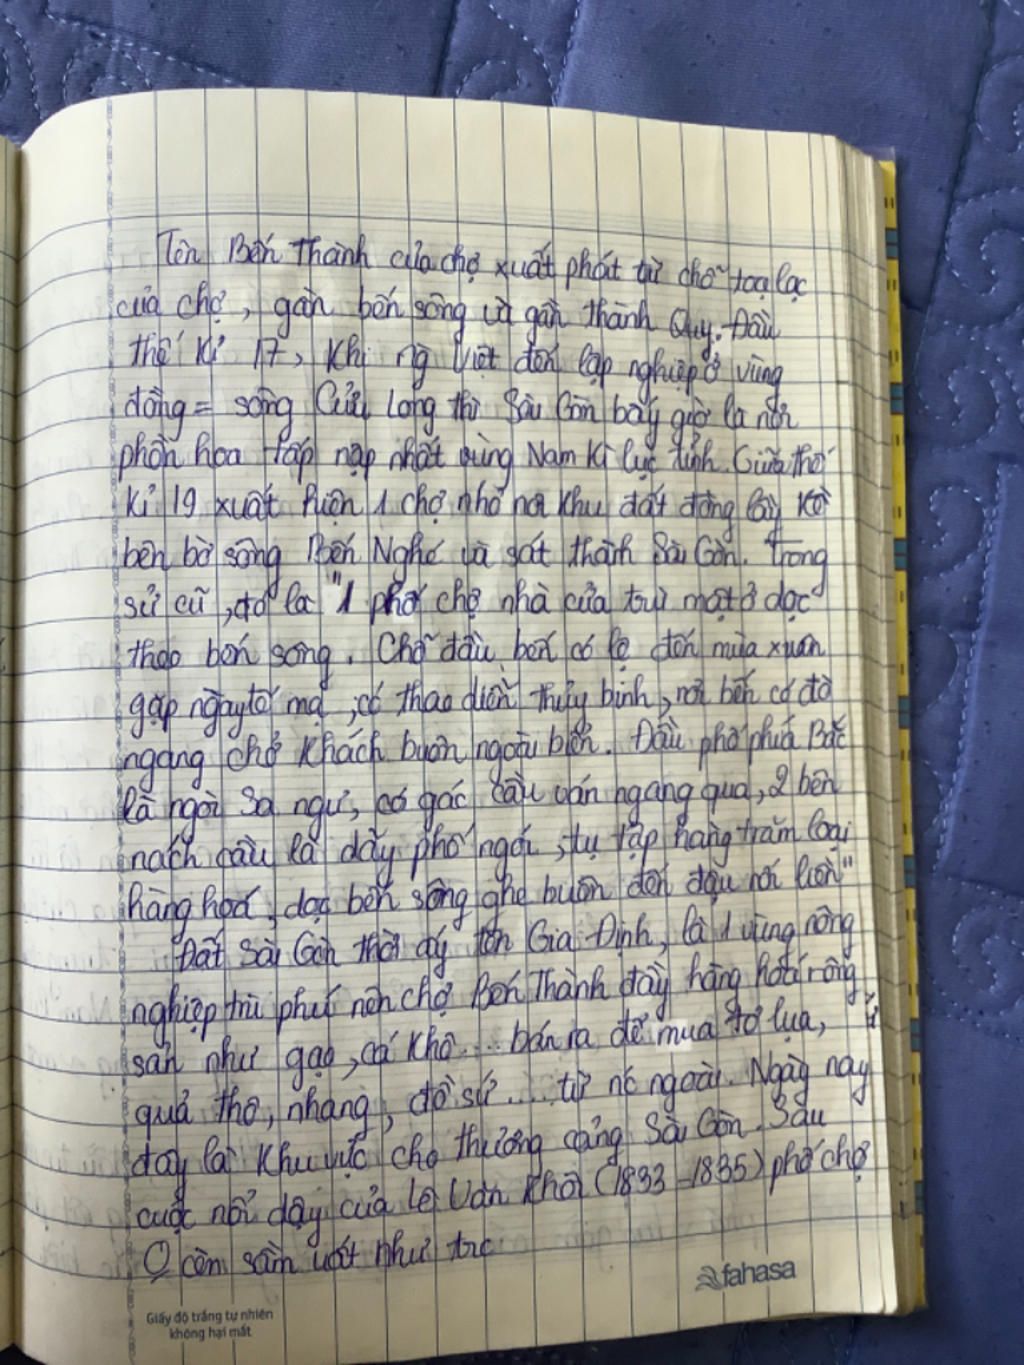 Tên Bến Thành của chợ xuất phát từ chỗ toạ lạc
của chợ, gần bến sông và gần thành Quy. Đầu
thế kỉ 17, khi ng Việt đến lập nghiệp ở vùng
đồng = sông Cửu Long thì Sài Gòn bấy giờ là nơi
phồn hoa tấp nập nhất vùng Nam Kì lục tỉnh. Giữa thế
kỉ 19 xuất hiện 1 chợ nhỏ nơi khu đất đông lầy kề
bên bờ sông Bến Nghé và sát thành Sài Gòn. Trong
sử cũ, đó là "1 phố chợ nhà cửa trù mật ở dọc
theo bến sông. Chỗ đầu bến có lệ đến mùa xuân
gặp ngày tế mạ, có thao diễn thủy binh, nơi bến có đò
ngang chở khách buôn ngoài biển. Đầu phố phía Bắc
là ngòi Sa ngư, có gác cầu ván ngang qua, 2 bên
nách cầu là dãy phố ngói, tụ tập hàng trăm loại
hàng hoá, dọc bến sông ghe buôn đến đậu nối liền"
Đất Sài Gòn thời ấy tên Gia Định, là 1 vùng nông
nghiệp trù phú nên chợ Bến Thành đầy hàng hoá nông
sản như gạo, cá khô... bán ra để mua tơ lụa,
quả thô, nhang, đồ sứ.... từ nc ngoài. Ngày nay
đây là khu vực chợ thương cảng Sài Gòn. Sau
cuộc nổi dậy của Lê Văn Khôi (1833 - 1835) phố chợ
O còn sầm uất như trc
fahasa
Giấy độ trắng tự nhiên
không hại mắt